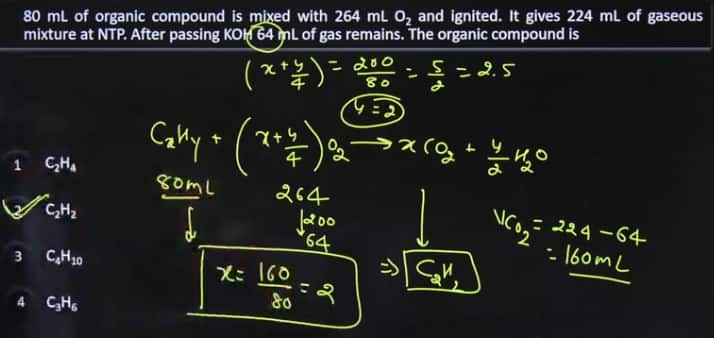 80 mL of organic compound is mixed with 264 mL O₂ and ignited. It gives 224 mL of gaseous
mixture at NTP. After passing KOH 64 mL of gas remains. The organic compound is
(x+y/4) = 200/80 = 5/2 = 2.5
y=2
CxHy + (x+y/4) O₂ → x CO₂ + y/2 H₂O
1 C₂H₄
80mL 264
200
2 C₂H₂
64
VCO₂ = 224 – 64
= 160mL
3 C₄H₁₀
x = 160/80 = 2 ⇒ C₂H₂
4 C₃H₆